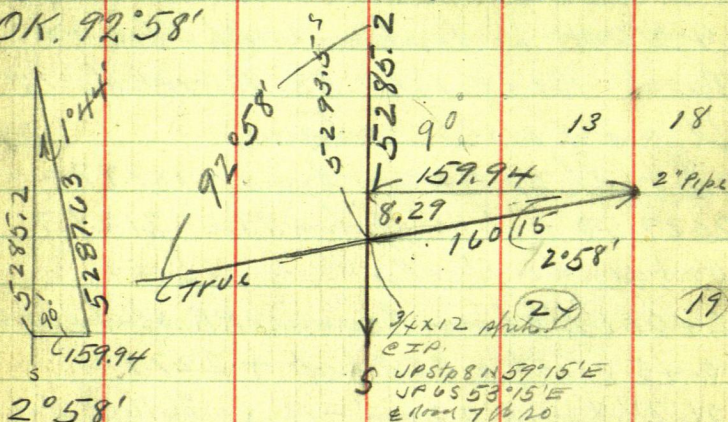 OK. 92°58'
1°44'
5285.2
5287.63
90°
159.94
S
2°58'
92°58'
5293.5
5285.2
90°
13
18
159.94
2" Pipe
8.29
160.15
2°58'
TRUE
24
19
3/4x12
@ I.P.
S
JP Stp 8 N 59°15'E
JP 6 S 53°15'E
Road 7